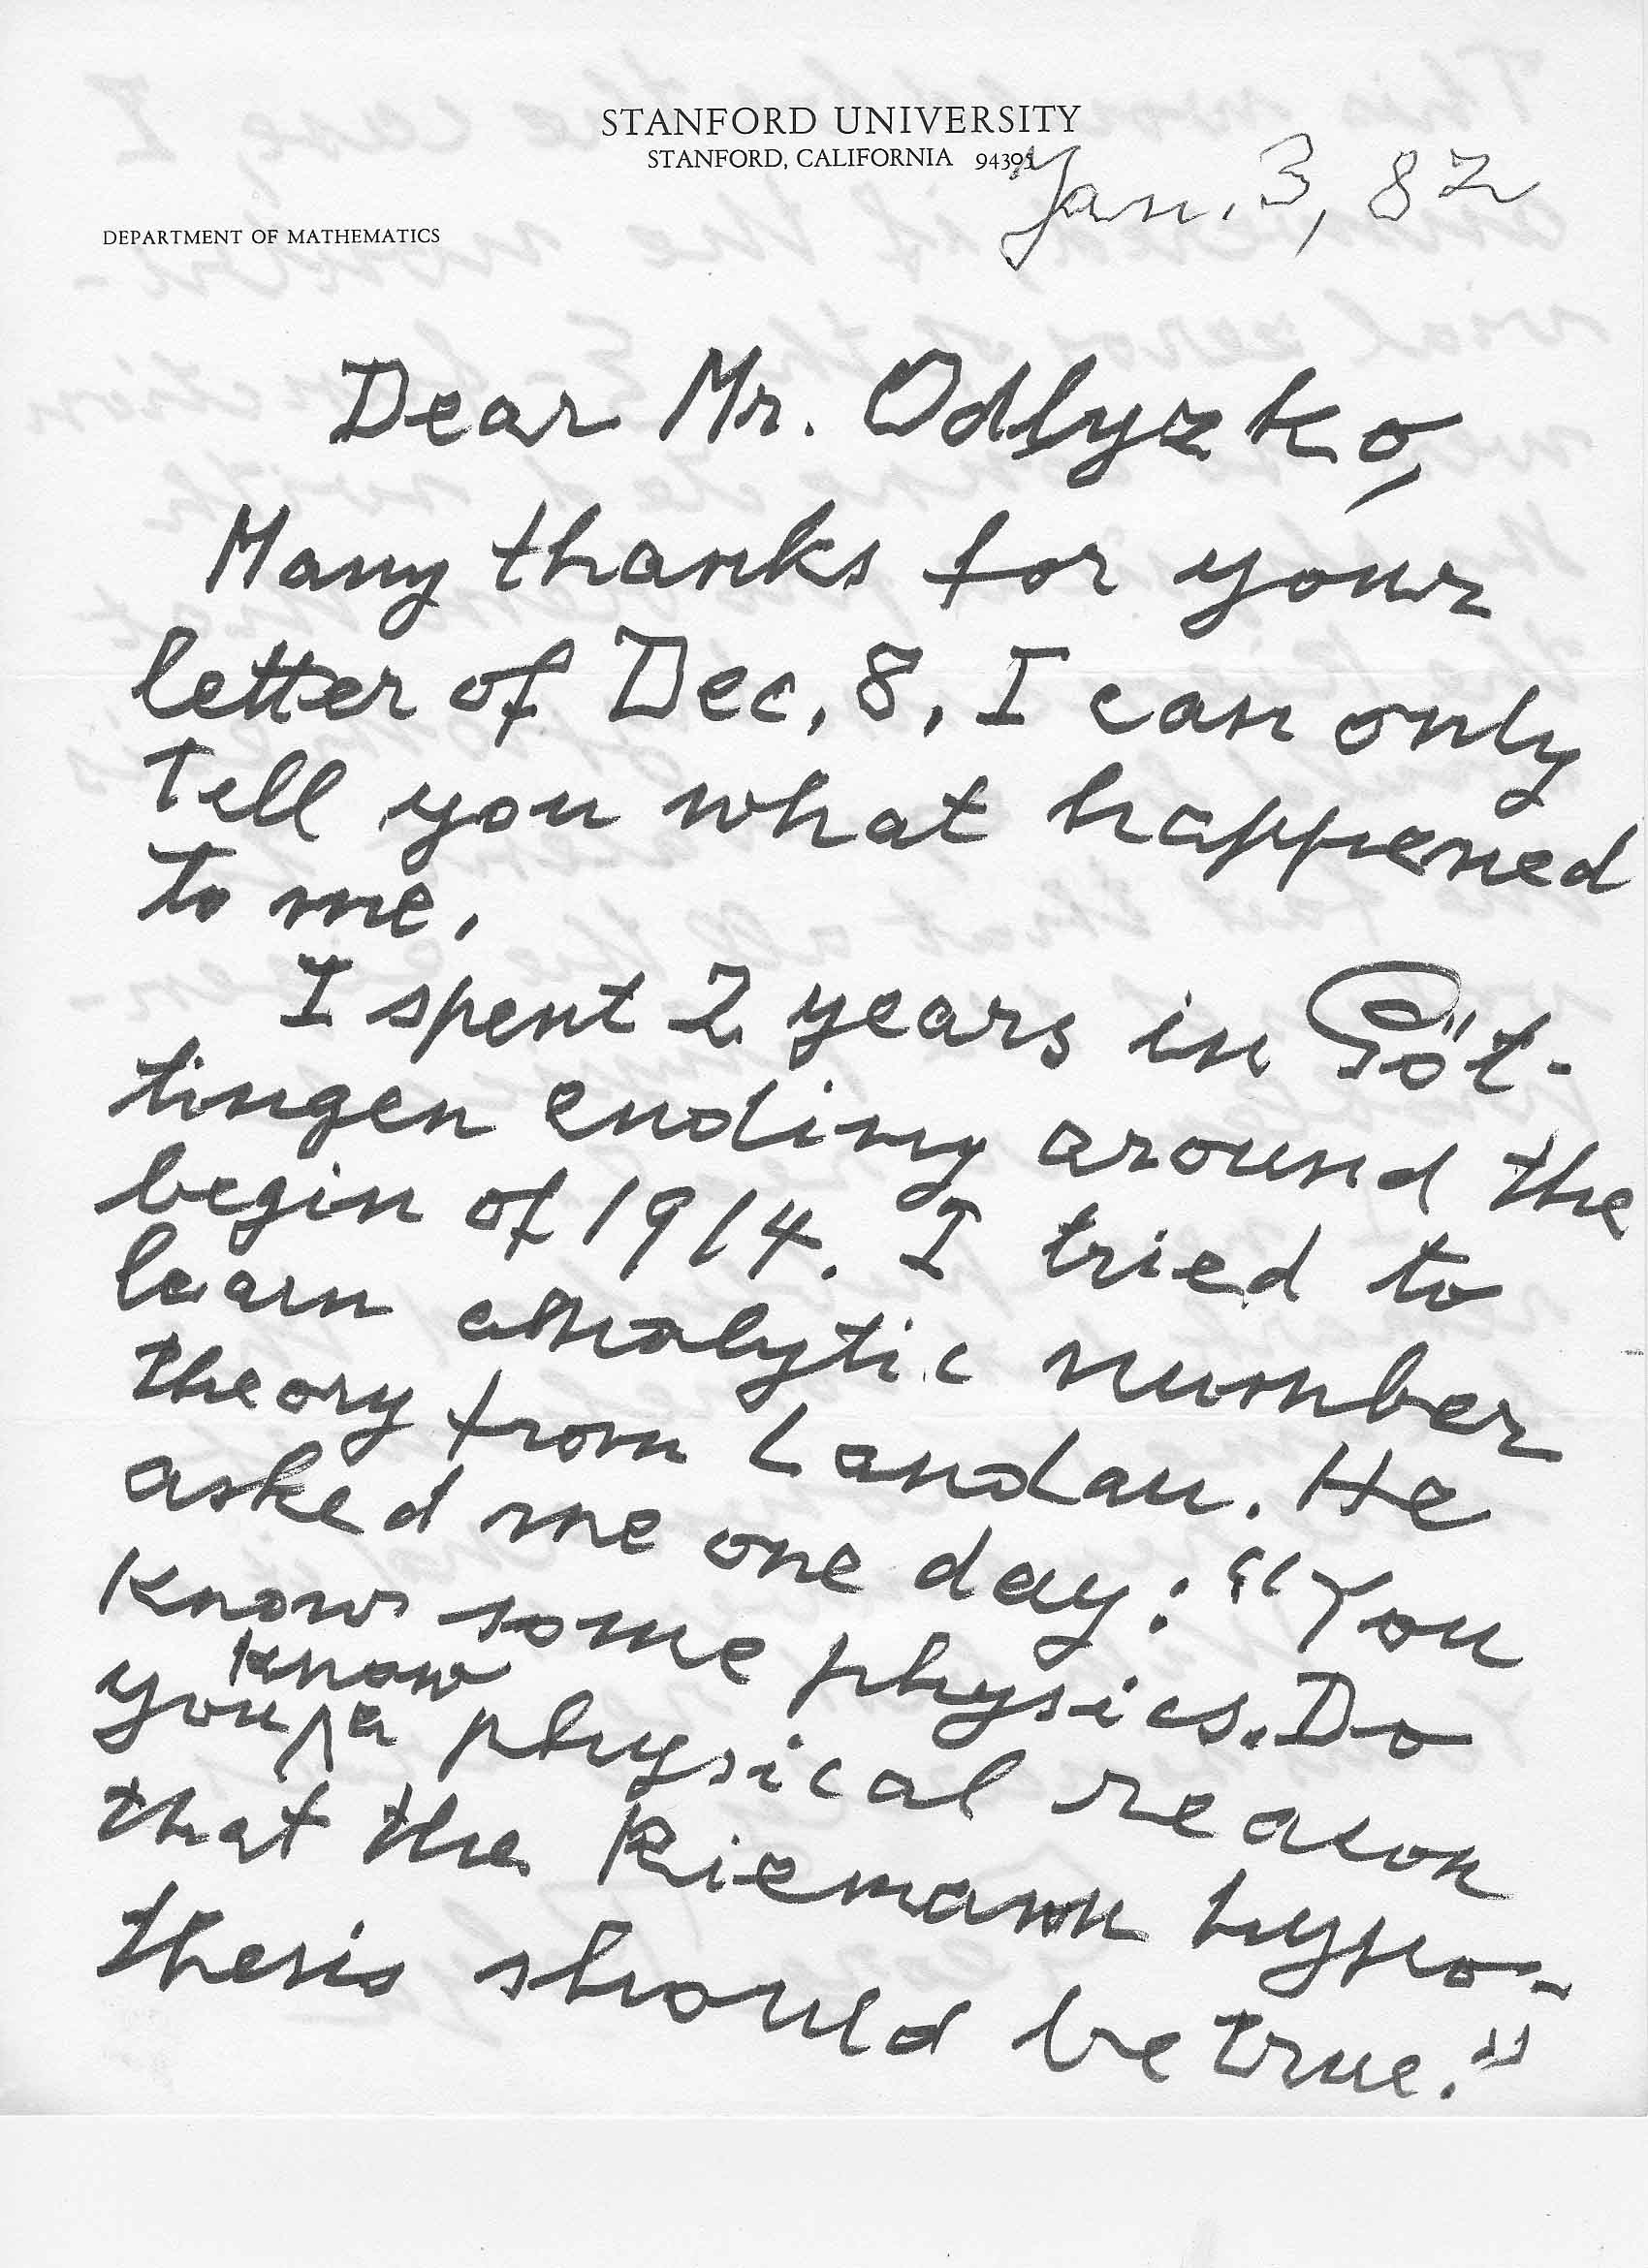 STANFORD UNIVERSITY
STANFORD, CALIFORNIA 94305
Jan. 3, 82
DEPARTMENT OF MATHEMATICS
Dear Mr. Odlyzko,
Many thanks for your
letter of Dec. 8. I can only
tell you what happened
to me.
I spent 2 years in Göt-
tingen ending around the
begin of 1914. I tried to
learn analytic number
theory from Landau. He
asked me one day: "You
know some physics. Do
you know a physical reason
that the Riemann hypo-
thesis should be true."